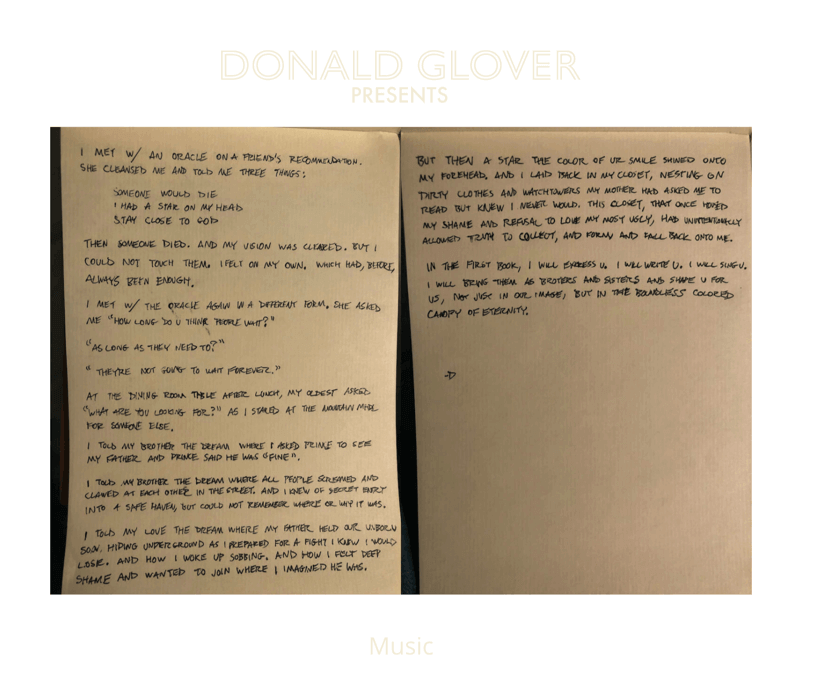 DONALD GLOVER
PRESENTS
I MET W/ AN ORACLE ON A FRIEND'S RECOMMENDATION.
SHE CLEANSED ME AND TOLD ME THREE THINGS:
SOMEONE WOULD DIE
I HAD A STAR ON MY HEAD
STAY CLOSE TO GOD
THEN SOMEONE DIED. AND MY VISION WAS CLEARED. BUT I
COULD NOT TOUCH THEM. I FELT ON MY OWN. WHICH HAD, BEFORE,
ALWAYS BEEN ENOUGH.
I MET W/ THE ORACLE AGAIN IN A DIFFERENT FORM. SHE ASKED
ME "HOW LONG DO U THINK PEOPLE WAIT?"
"AS LONG AS THEY NEED TO?"
"THEYRE NOT GOING TO WAIT FOREVER."
AT THE DINING ROOM TABLE AFTER LUNCH, MY OLDEST ASKED
"WHAT ARE YOU LOOKING FOR?" AS I STARED AT THE MOUNTAIN MADE
FOR SOMEONE ELSE.
I TOLD MY BROTHER THE DREAM WHERE I ASKED PRINCE TO SEE
MY FATHER AND PRINCE SAID HE WAS "FINE".
I TOLD MY BROTHER THE DREAM WHERE ALL PEOPLE SCREAMED AND
CLAWED AT EACH OTHER IN THE STREET. AND I KNEW OF SECRET ENTRY
INTO A SAFE HAVEN, BUT COULD NOT REMEMBER WHERE OR WHY IT WAS.
I TOLD MY LOVE THE DREAM WHERE MY FATHER HELD OUR UNBORN
SON. HIDING UNDERGROUND AS I PREPARED FOR A FIGHT I KNEW I WOULD
LOSE. AND HOW I WOKE UP SOBBING. AND HOW I FELT DEEP
SHAME AND WANTED TO JOIN WHERE I IMAGINED HE WAS.
BUT THEN A STAR THE COLOR OF UR SMILE SHINED ONTO
MY FOREHEAD. AND I LAID BACK IN MY CLOSET, NESTING ON
DIRTY CLOTHES AND WATCHTOWERS MY MOTHER HAD ASKED ME TO
READ BUT KNEW I NEVER WOULD. THIS CLOSET, THAT ONCE HOPED
MY SHAME AND REFUSAL TO LOVE MY MOST UGLY, HAD UNINTENTIONALLY
ALLOWED TRUTH TO COLLECT, AND FORM AND FALL BACK ONTO ME.
IN THE FIRST BOOK, I WILL EXPRESS U. I WILL WRITE U. I WILL SING U.
I WILL BRING THEM AS BROTERS AND SISTERS AND SHAPE U FOR
US, NOT JUST IN OUR IMAGE, BUT IN THE BOUNDLESS COLORED
CANOPY OF ETERNITY.
-D
Music